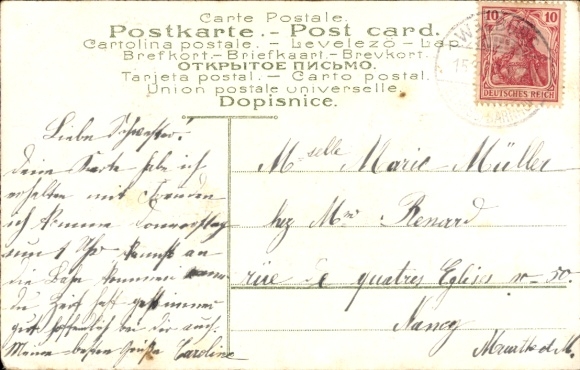 Carte Postale.
Postkarte. - Post card.
Cartolina postale. - Levelező - Lap
Brefkort. - Briefkaart. - Brevkort.
ОТКРЫТОЕ ПИСЬМО.
Tarjeta postal. - Carto postal.
Union postale universelle.
Dopisnice.
10 10
DEUTSCHES REICH
Liebe Schwester.
Deine Karte habe ich
erhalten mit Freuden
ich komme Donnerstag
um 1 Uhr kannst an
die Bahn kommen wenn
du Zeit hast
gut hoffentlich bei dir auch.
Meine besten Grüße Caroline
Mselle Marie Müller
chez Mme Renard
rue de quatres Eglises No 50.
Nancy
Meurthe et M.